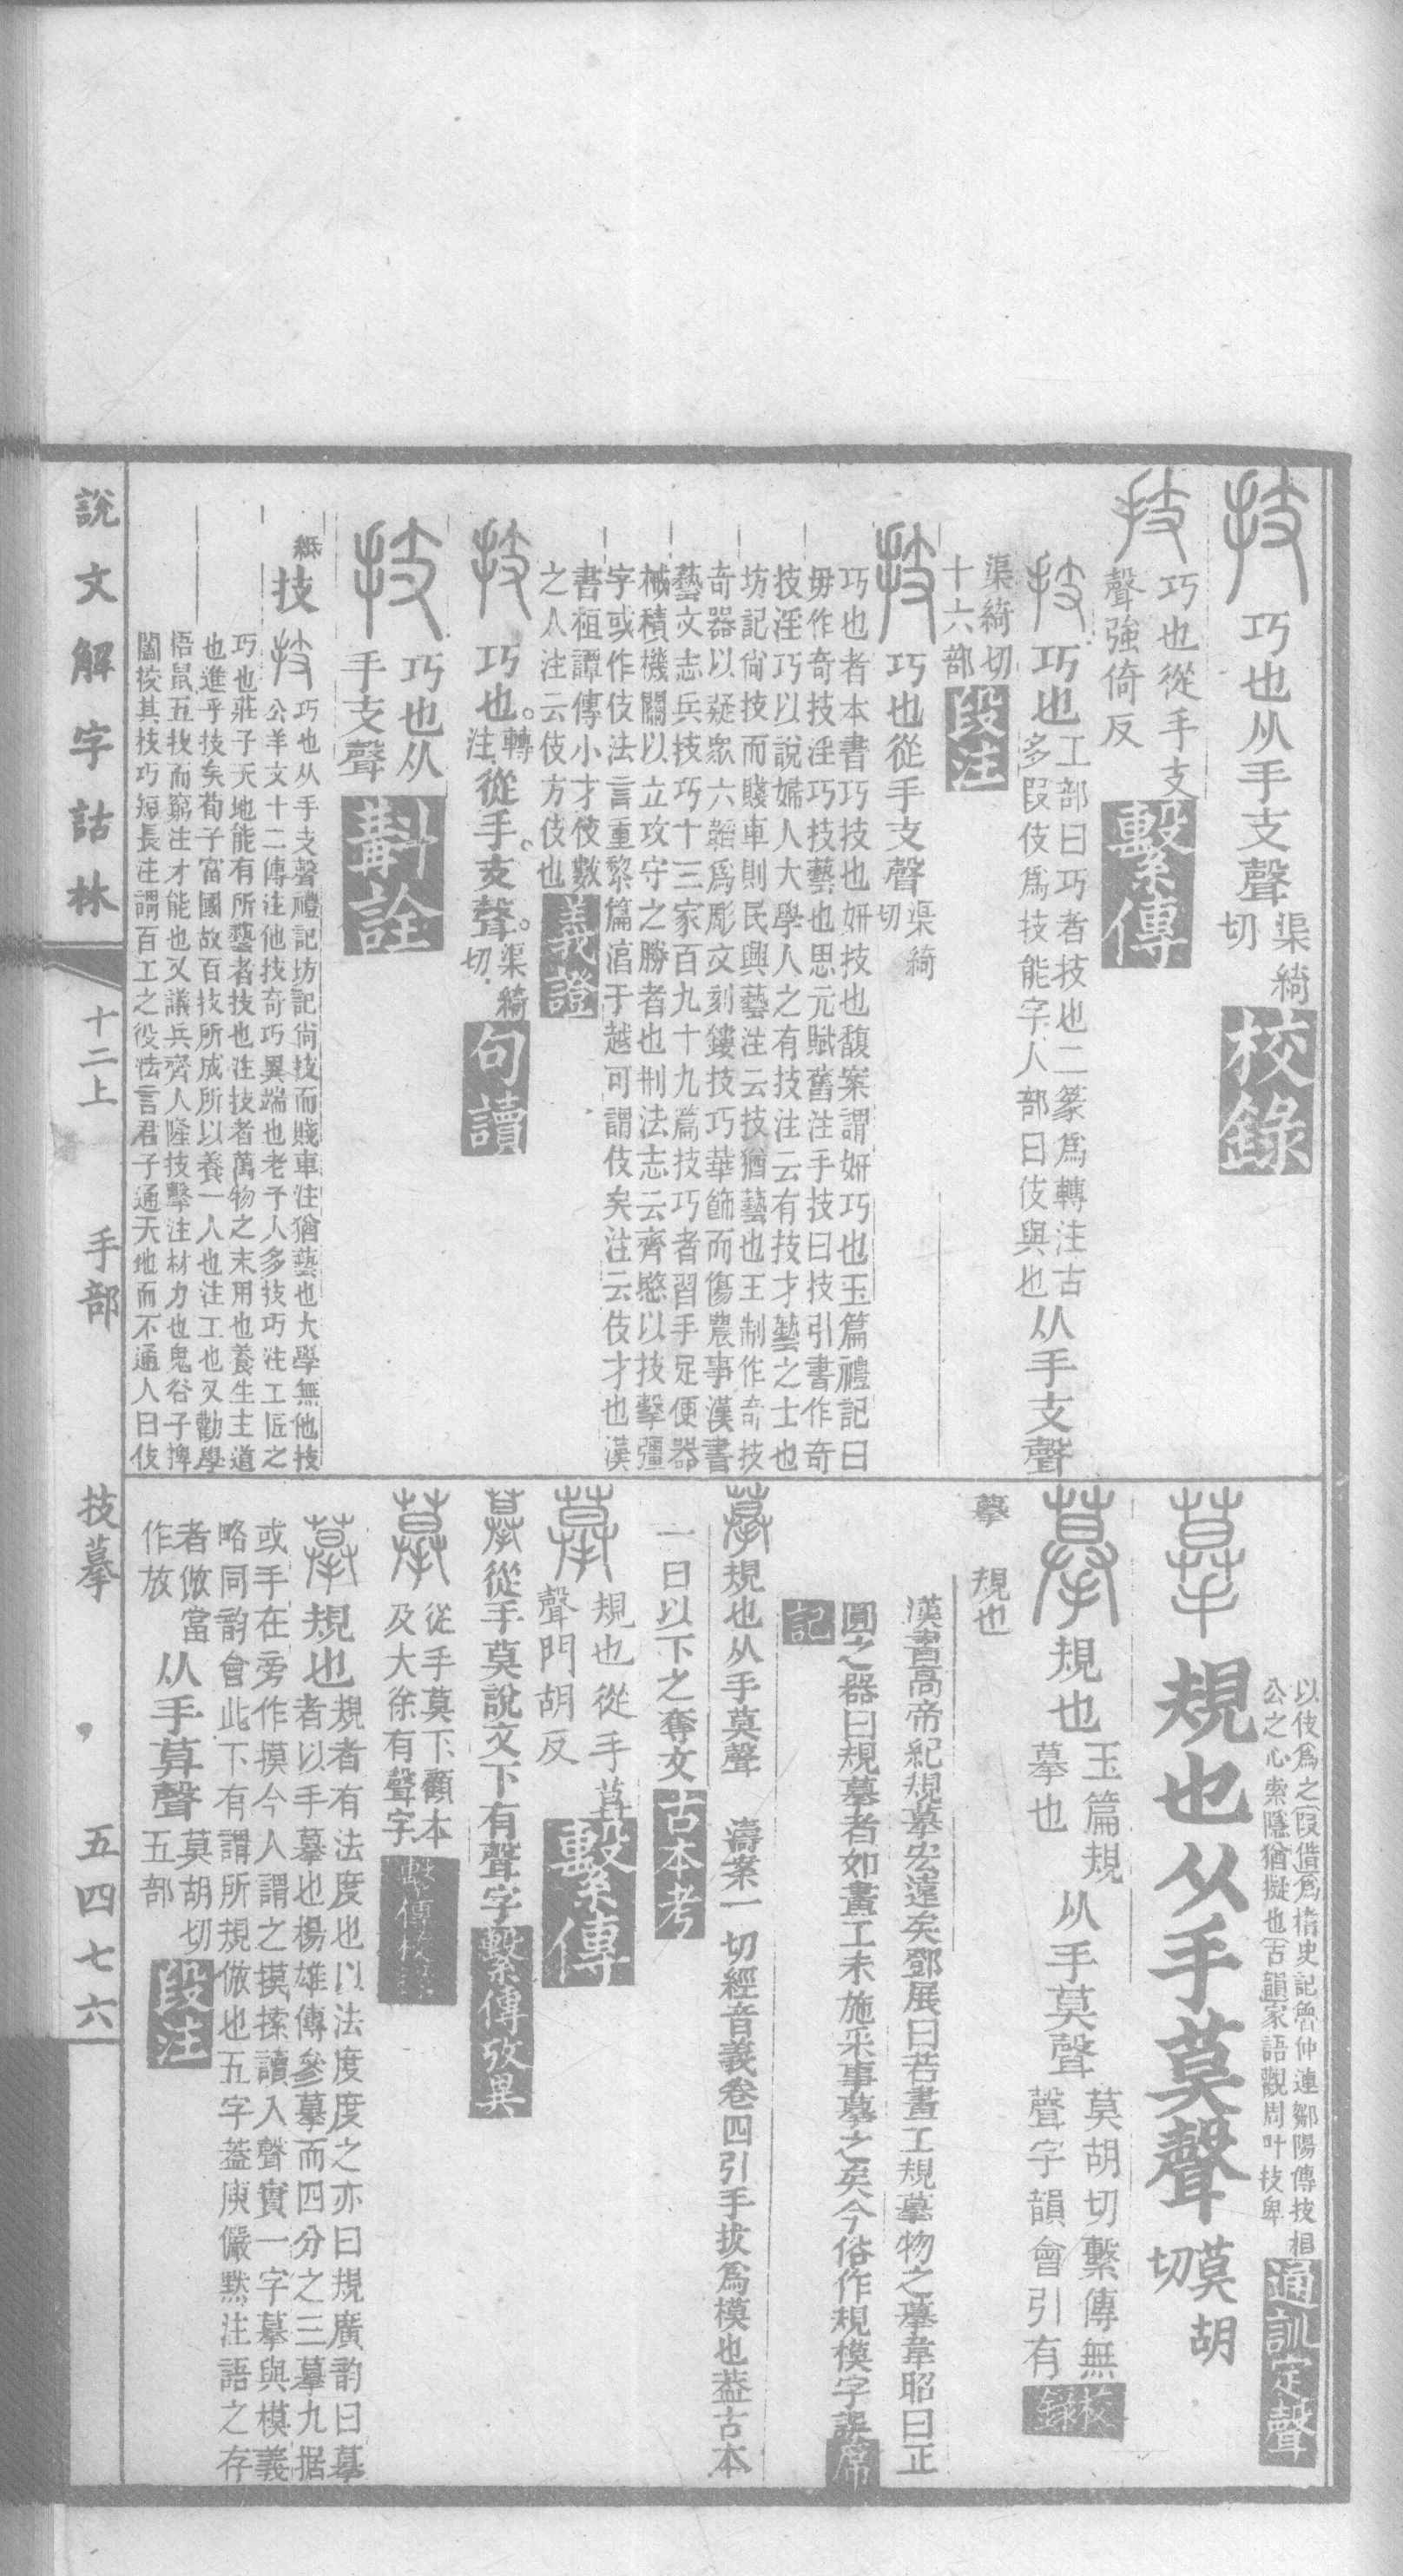 技 巧也从手支聲 渠綺切 校錄
技 巧也從手支聲強倚反 繫傳
技 巧也 工部曰巧者技也二篆爲轉注古多叚伎爲技能字人部曰伎與也 从手支聲
渠綺切十六部 段注
技 巧也從手支聲 渠綺切
巧也者本書巧技也姸技也馥案謂姸巧也玉篇禮記曰
毋作奇技淫巧技藝也思元賦舊注手技曰技引書作奇
技淫巧以說婦人大學人之有技注云有技才藝之士也
坊記尙技而賤車則民興藝注云技猶藝也王制作奇技
奇器以疑眾六韜爲彫文刻鏤技巧華飾而傷農事漢書
藝文志兵技巧十三家百九十九篇技巧者習手足便器
械積機關以立攻守之勝者也刑法志云齊愍以技擊彊
字或作伎法言重黎篇湻于越可謂伎矣注云伎才也漢
書桓譚傳小才伎數
之人注云伎方伎也 義證
技 巧也。轉注 從手。支聲。渠綺切 句讀
技 巧也从手支聲 斠詮
紙 技 技 巧也从手支聲禮記坊記尙技而賤車注猶藝也大學無他技
公羊文十二傳注他技奇巧異端也老子人多技巧注工匠之
巧也莊子天地能有所藝者技也注技者萬物之末用也養生主道
也進乎技矣荀子富國故百技所成所以養一人也注工也又勸學
梧鼠五技而窮注才能也又議兵齊人隆技擊注材力也鬼谷子捭
闔校其技巧短長注謂百工之役法言君子通天地而不通人曰伎
以伎爲之叚借爲榰史記魯仲連鄒陽傳技相
公之心索隱猶擬也古韻家語觀周叶技卑 通訓定聲
摹 規也从手莫聲 莫胡切
摹 規也 玉篇規摹也 从手莫聲 莫胡切繫傳無聲字韻會引有 校錄
摹 規也
漢書高帝紀規摹宏遠矣鄧展曰若畫工規摹物之摹韋昭曰正
圓之器曰規摹者如畫工未施采事摹之矣今俗作規模字誤 席記
摹 規也从手莫聲 濤案一切經音義卷四引手拔爲模也葢古本
一曰以下之奪文 古本考
摹 規也從手莫聲門胡反 繫傳
摹 從手莫說文下有聲字 繫傳攷異
摹 從手莫下顧本及大徐有聲字 繫傳校錄
摹 規也 規者有法度也以法度度之亦曰規廣韵曰摹
者以手摹也楊雄傳參摹而四分之三摹九据
或手在旁作摸今人謂之摸㩎讀入聲實一字摹與模義
略同韵會此下有謂所規倣也五字葢庾儼默注語之存
者倣當作放 从手莫聲 莫胡切五部 段注
說文解字詁林 十二上 手部 技摹 五四七六